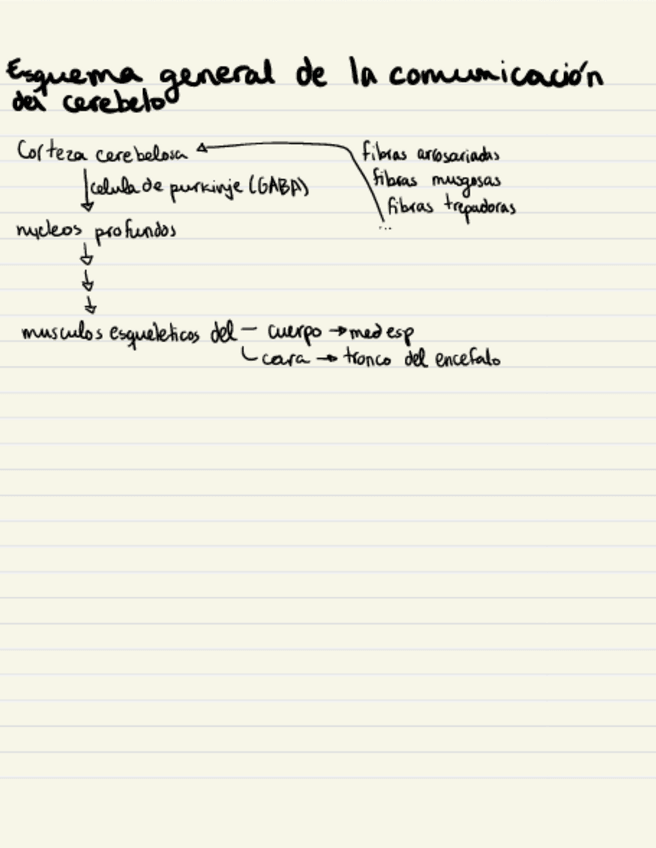 Esquema general de la comunicación
del cerebelo
Corteza cerebelosa
fibras arrosariadas
celula de purkinje (GABA)
fibras musgosas
fibras trepadoras
...
nucleos profundos
musculos esqueleticos del — cuerpo → med esp
cara → tronco del encefalo